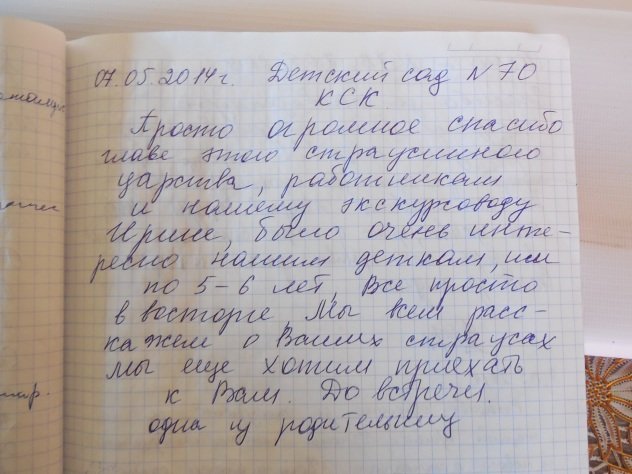 07.05.2014г. Детский сад N 70
КСК.
Просто огромное спасибо
главе этого страусиного
царства, работникам
и нашему экскурсоводу
Ирине, было очень инте-
ресно нашим деткам, им
по 5-6 лет, Все просто
в восторге, Мы всем расс-
кажем о Ваших страусах
Мы еще хотим приехать
к Вам. До встречи.
одна из родительниц